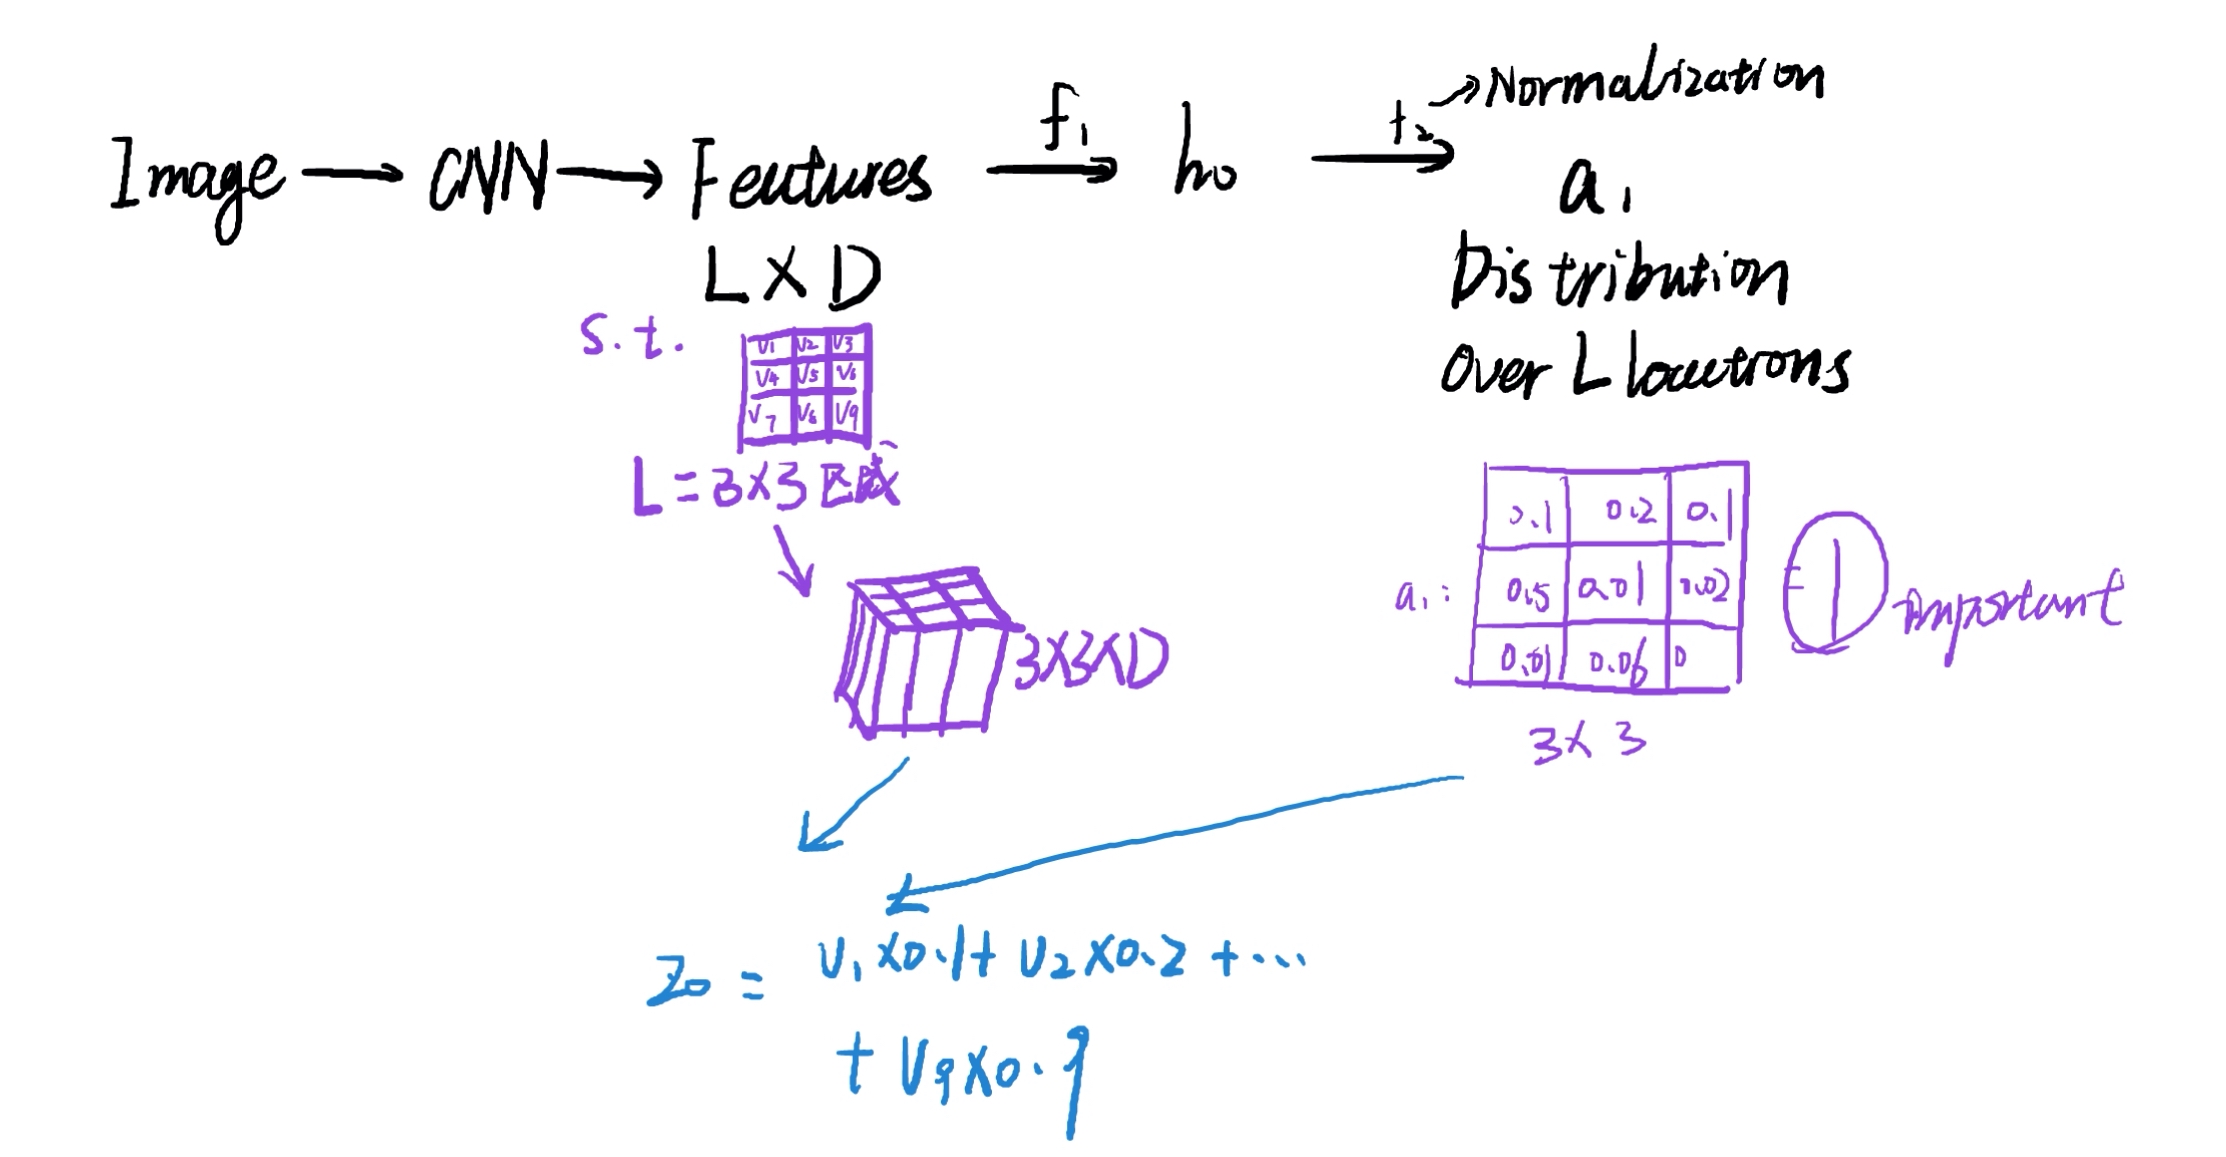 Image → CNN → Features f₁ → h₀ f₂ → Normalization
L×D
a₁
Distribution
Over L locations
s.t.
V1 V2 V3
V4 V5 V6
V7 V8 V9
L=3×3区域
3×3×D
a₁:
0.1 0.2 0.1
0.5 0.01 0.02
0.01 0.06 0
3×3
= 1 Important
Z₀ = V₁×0.1+V₂×0.2+...
+V₉×0.9